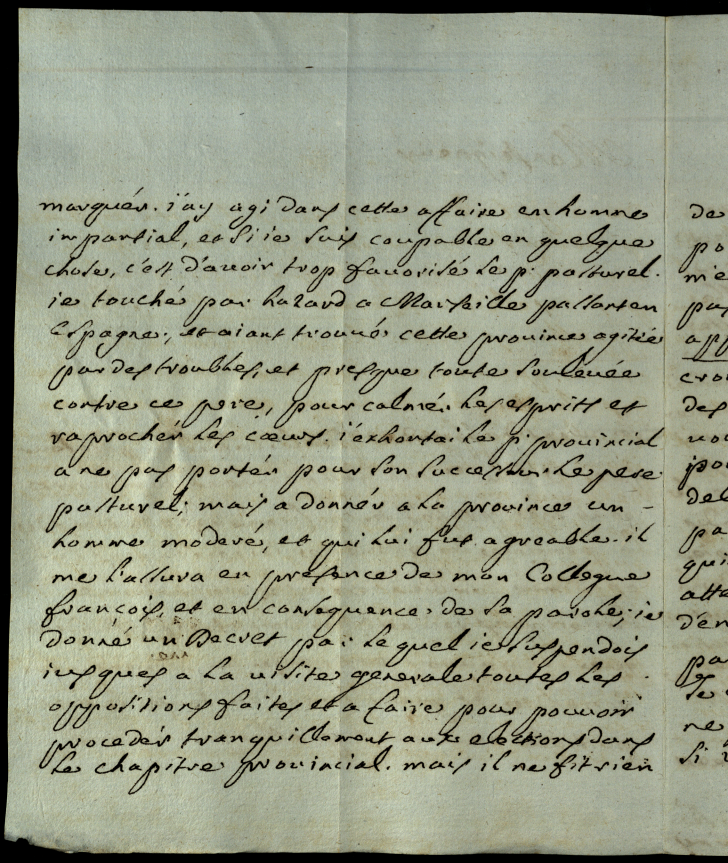 marquér. j'ay agi dans cette affaire en homme
impartial, et si ie suis coupable en quelque
chose, c'est d'avoir trop favorisé le p. pasturel.
ie touché par hazard a Marseille passant en
Espagne, et aiant trouvé cette province agitée
par des troubles, et presque toute soulevée
contre ce pere, pour calmér les esprits et
raprochér les cœurs. j'exhortai le p. provincial
a ne pas portér pour son successeur le pere
pasturel; mais a donnér a la province un -
homme moderé, et qui lui fut agreable. il
me l'assura en presence de mon Collegue
françois, et en consequence de sa parole, ie
donné un Decret par le quel ie suspendois
iusques a la visite generale toutes les
oppositions faites et a faire pour pouvoir
procedér tranquillement aux elections dans
le chapitre provincial. mais il ne fit rien
de
po
me
pas
app
croi
des
vou
pou
del
pa
qui
atta
d'en
pa
se
ne
si